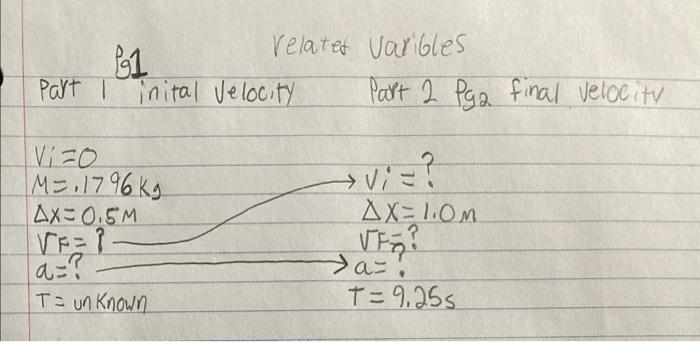 related varibles
Pg1
Part 1 inital velocity
Part 2 Pg2 final velocity
Vi=0
M=.1796kg
ΔX=0.5M
VF=?
a=?
T= unknown
Vi=?
ΔX=1.0M
VF=?
a=?
T=9.25s